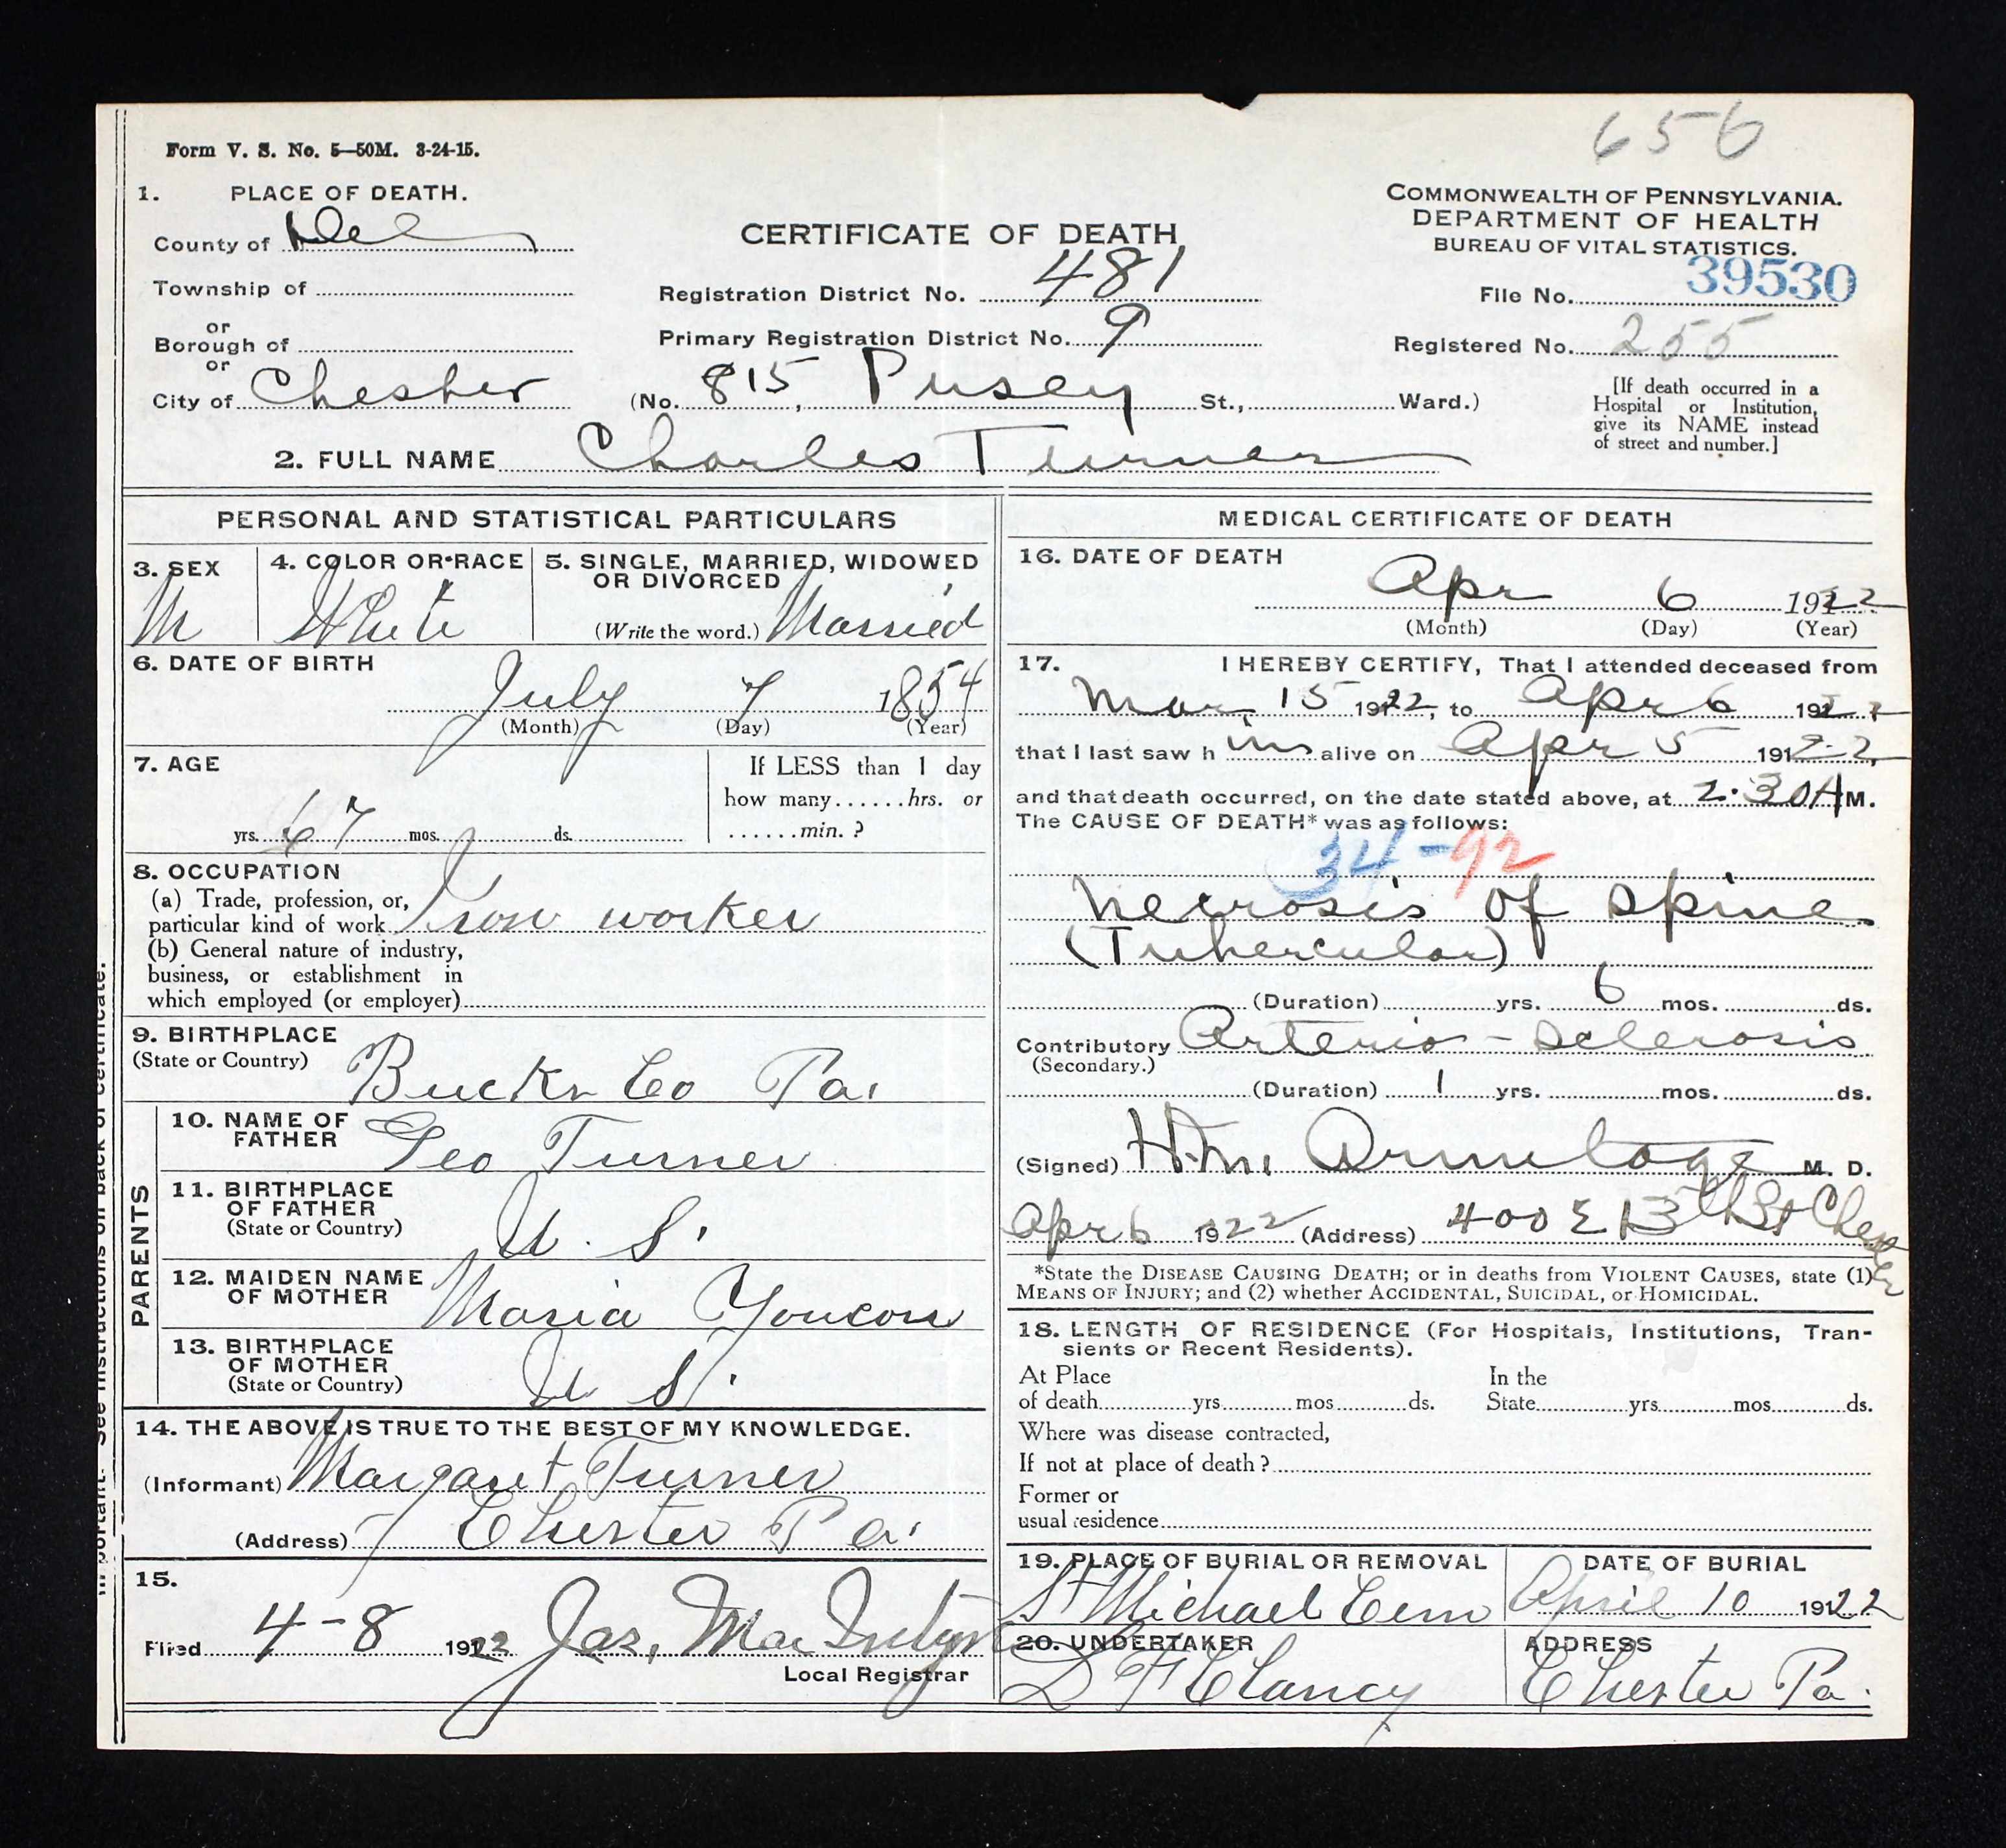 656
Form V. S. No. 5—50M. 3-24-15.
1. PLACE OF DEATH.
County of Del
Township of
or
Borough of
or
City of Chester
CERTIFICATE OF DEATH
Registration District No. 481
Primary Registration District No. 9
(No. 815, Pusey St., Ward.)
COMMONWEALTH OF PENNSYLVANIA.
DEPARTMENT OF HEALTH
BUREAU OF VITAL STATISTICS.
File No. 39530
Registered No. 255
[If death occurred in a
Hospital or Institution,
give its NAME instead
of street and number.]
2. FULL NAME Charles Turner
PERSONAL AND STATISTICAL PARTICULARS
3. SEX
M
4. COLOR OR RACE
White
5. SINGLE, MARRIED, WIDOWED
OR DIVORCED
(Write the word.) Married
6. DATE OF BIRTH
July 7 1854
(Month) (Day) (Year)
7. AGE
yrs. 67 mos. ds.
If LESS than 1 day
how many......hrs. or
......min. ?
8. OCCUPATION
(a) Trade, profession, or,
particular kind of work Iron worker
(b) General nature of industry,
business, or establishment in
which employed (or employer)
9. BIRTHPLACE
(State or Country)
Bucks Co Pa.
PARENTS
10. NAME OF
FATHER
Geo Turner
11. BIRTHPLACE
OF FATHER
(State or Country)
U. S.
12. MAIDEN NAME
OF MOTHER
Maria
13. BIRTHPLACE
OF MOTHER
(State or Country)
U S.
14. THE ABOVE IS TRUE TO THE BEST OF MY KNOWLEDGE.
(Informant) Margaret Turner
(Address) Chester Pa.
15.
Filed 4-8 1922 Jas. MacIntyre
Local Registrar
MEDICAL CERTIFICATE OF DEATH
16. DATE OF DEATH
Apr 6 1922
(Month) (Day) (Year)
17. I HEREBY CERTIFY, That I attended deceased from
Mar. 15 1922, to Apr 6 1922
that I last saw him alive on Apr 5 1922,
and that death occurred, on the date stated above, at 2.30 A M.
The CAUSE OF DEATH* was as follows:
34-92
Necrosis of Spine
(Tubercular)
(Duration) yrs. 6 mos. ds.
Contributory Arterio-Sclerosis
(Secondary.)
(Duration) 1 yrs. mos. ds.
(Signed) H.M. Armitage M. D.
Apr 6 1922 (Address) 400 E 13th St Chester
*State the DISEASE CAUSING DEATH; or in deaths from VIOLENT CAUSES, state (1)
MEANS OF INJURY; and (2) whether ACCIDENTAL, SUICIDAL, or HOMICIDAL.
18. LENGTH OF RESIDENCE (For Hospitals, Institutions, Tran-
sients or Recent Residents).
At Place
of death yrs mos ds.
In the
State yrs mos ds.
Where was disease contracted,
If not at place of death ?
Former or
usual residence
19. PLACE OF BURIAL OR REMOVAL
St Michael Cem
DATE OF BURIAL
April 10 1922
20. UNDERTAKER
D F Clancy
ADDRESS
Chester Pa.
Important. See instructions on back of certificate.